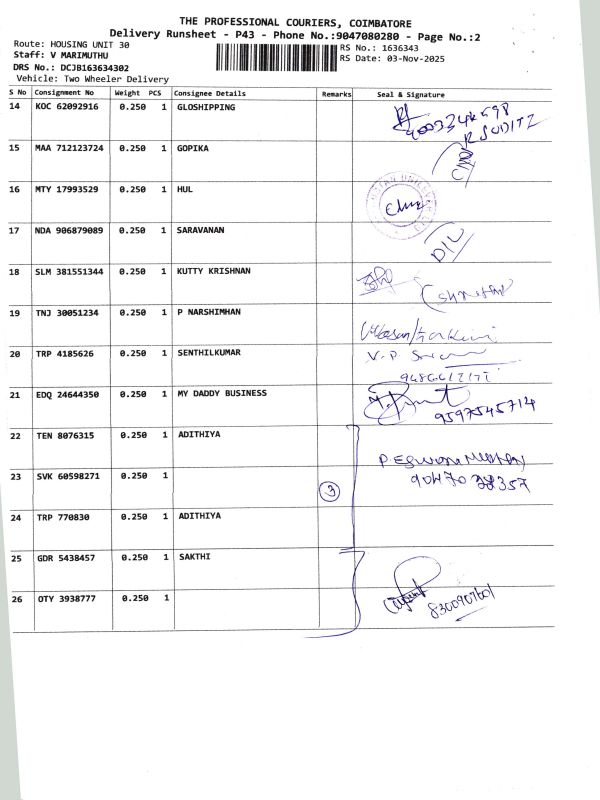 THE PROFESSIONAL COURIERS, COIMBATORE
Delivery Runsheet - P43 - Phone No.:9047080280 - Page No.:2
Route: HOUSING UNIT 30
Staff: V MARIMUTHU
DRS No.: DCJB163634302
Vehicle: Two Wheeler Delivery
RS No.: 1636343
RS Date: 03-Nov-2025
S No Consignment No Weight PCS Consignee Details Remarks Seal & Signature
14 KOC 62092916 0.250 1 GLOSHIPPING
15 MAA 712123724 0.250 1 GOPIKA
16 MTY 17993529 0.250 1 HUL
17 NDA 906879089 0.250 1 SARAVANAN
18 SLM 381551344 0.250 1 KUTTY KRISHNAN
19 TNJ 30051234 0.250 1 P NARSHIMHAN
20 TRP 4185626 0.250 1 SENTHILKUMAR
21 EDQ 24644350 0.250 1 MY DADDY BUSINESS
9597545714
22 TEN 8076315 0.250 1 ADITHIYA
23 SVK 60598271 0.250 1 3
90470 38357
24 TRP 770830 0.250 1 ADITHIYA
25 GDR 5438457 0.250 1 SAKTHI
26 OTY 3938777 0.250 1